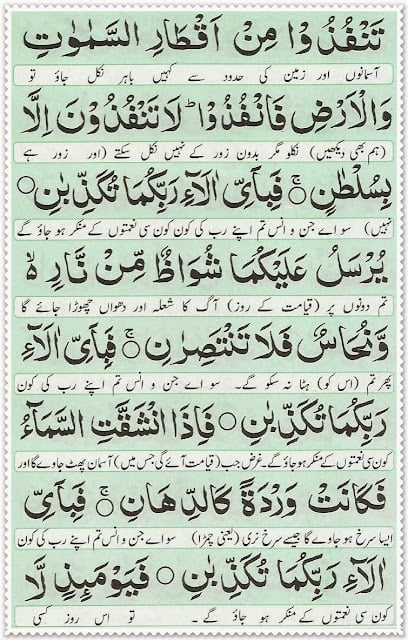 تَنْفُذُوْا مِنْ اَقْطَارِ السَّمٰوٰتِ
آسمانوں اور زمین کی حدود سے کہیں باہر نکل جاؤ تو
وَالْاَرْضِ فَانْفُذُوْا ؕ لَا تَنْفُذُوْنَ اِلَّا
(ہم بھی دیکھیں) نکلو مگر بدون زور کے نہیں نکل سکتے (اور زور ہے
بِسُلْطٰنٍ ۚ○ فَبِاَىِّ اٰلَآءِ رَبِّكُمَا تُكَذِّبٰنِ ○
نہیں) سو اے جن و انس تم اپنے رب کی کون کون سی نعمتوں کے منکر ہو جاؤ گے
يُرْسَلُ عَلَيْكُمَا شُوَاظٌ مِّنْ نَّارٍ ۙ
تم دونوں پر (قیامت کے روز) آگ کا شعلہ اور دھواں چھوڑا جائے گا
وَّنُحَاسٌ فَلَا تَنْتَصِرٰنِ ۚ○ فَبِاَىِّ اٰلَآءِ
پھر تم (اس کو) ہٹا نہ سکو گے۔ سو اے جن و انس تم اپنے رب کی کون
رَبِّكُمَا تُكَذِّبٰنِ ○ فَاِذَا انْشَقَّتِ السَّمَآءُ
کون سی نعمتوں کے منکر ہو جاؤ گے۔ غرض جب (قیامت آئے گی جس میں) آسمان پھٹ جاوے گا اور
فَكَانَتْ وَرْدَةً كَالدِّهَانِ ۚ○ فَبِاَىِّ
ایسا سرخ ہو جاوے گا جیسے سرخ نری (یعنی چمڑا) سو اے جن و انس تم اپنے رب کی کون
اٰلَآءِ رَبِّكُمَا تُكَذِّبٰنِ ○ فَيَوْمَئِذٍ لَّا
کون سی نعمتوں کے منکر ہو جاؤ گے ۔ تو اس روز کسی